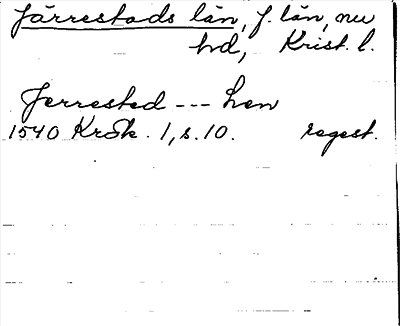 Järrestads län, f. län, nu
hd, Krist. l.
Jerrested --- Len
1540 KrSk. 1, s. 10. regest.